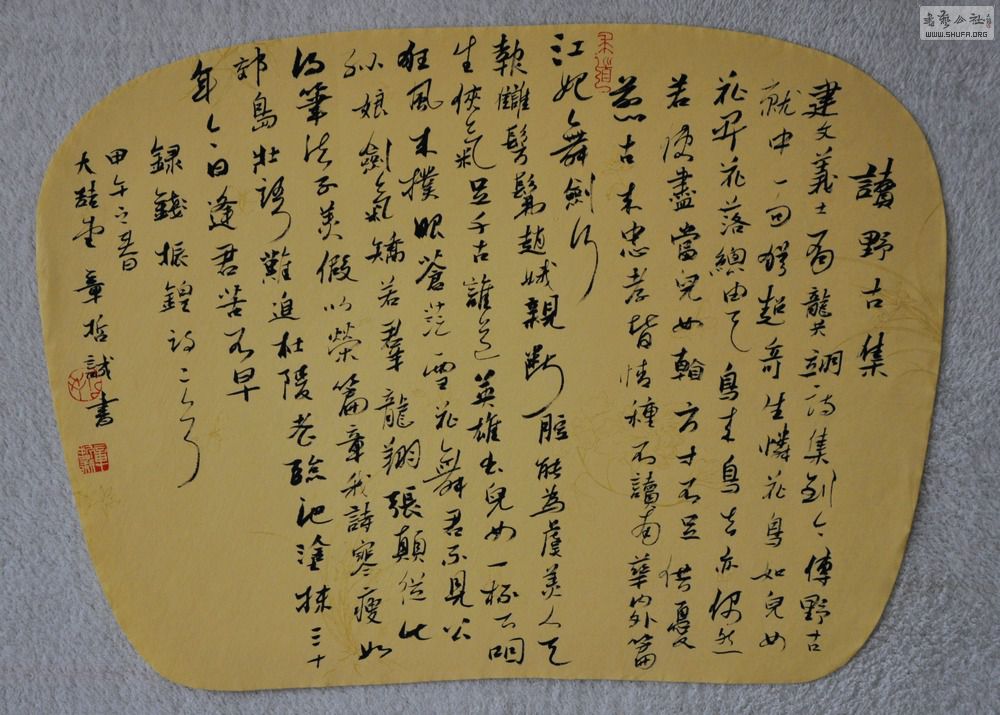 讀野古集
建文義士有龍共翊詩集到今傳野古
就中一自超奇生憐花鳥如兒女
花開花落總由天鳥來鳥去亦偶然
若便盡當兒女翰方寸不足供憂
煎古來忠孝皆情種不讀南華內外篇
江妃舞劍行
報讎髣髴趙娥親斷脰能為虞美人天
生俠氣足千古誰道英雄出兒女一杯方咽
狂風來撲眼蒼茫雪花舞君不見公
孫娘劍氣矯若群龍翔張顛從此
得筆法不羨假以榮篇章我詩寒瘦如
郊島壯語難追杜陵老臨池塗抹三十
年今日逢君苦不早
錄錢振鍠詩二首
甲午之春
大喆堂章哲誠書
書藝公社
WWW.SHUFA.ORG